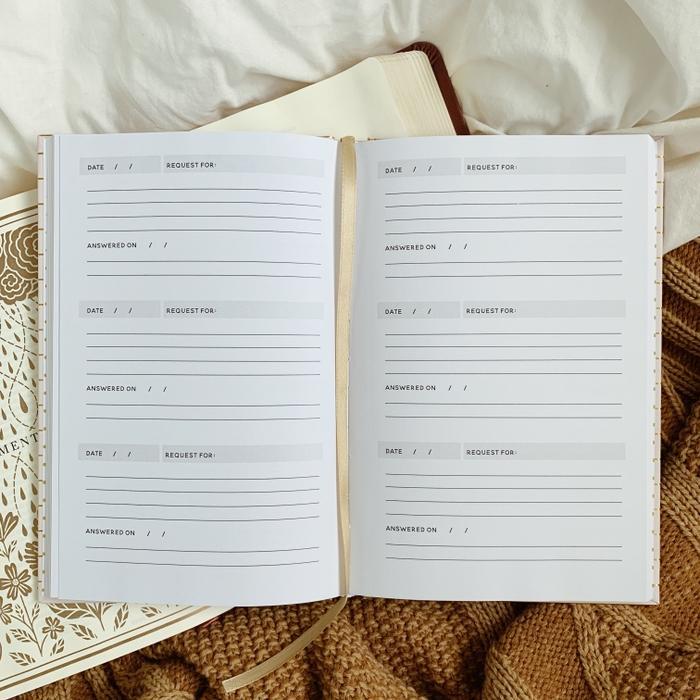 DATE / / REQUEST FOR:
ANSWERED ON / /
DATE / / REQUEST FOR:
ANSWERED ON / /
DATE / / REQUEST FOR:
ANSWERED ON / /
DATE / / REQUEST FOR:
ANSWERED ON / /
DATE / / REQUEST FOR:
ANSWERED ON / /
DATE / / REQUEST FOR:
ANSWERED ON / /